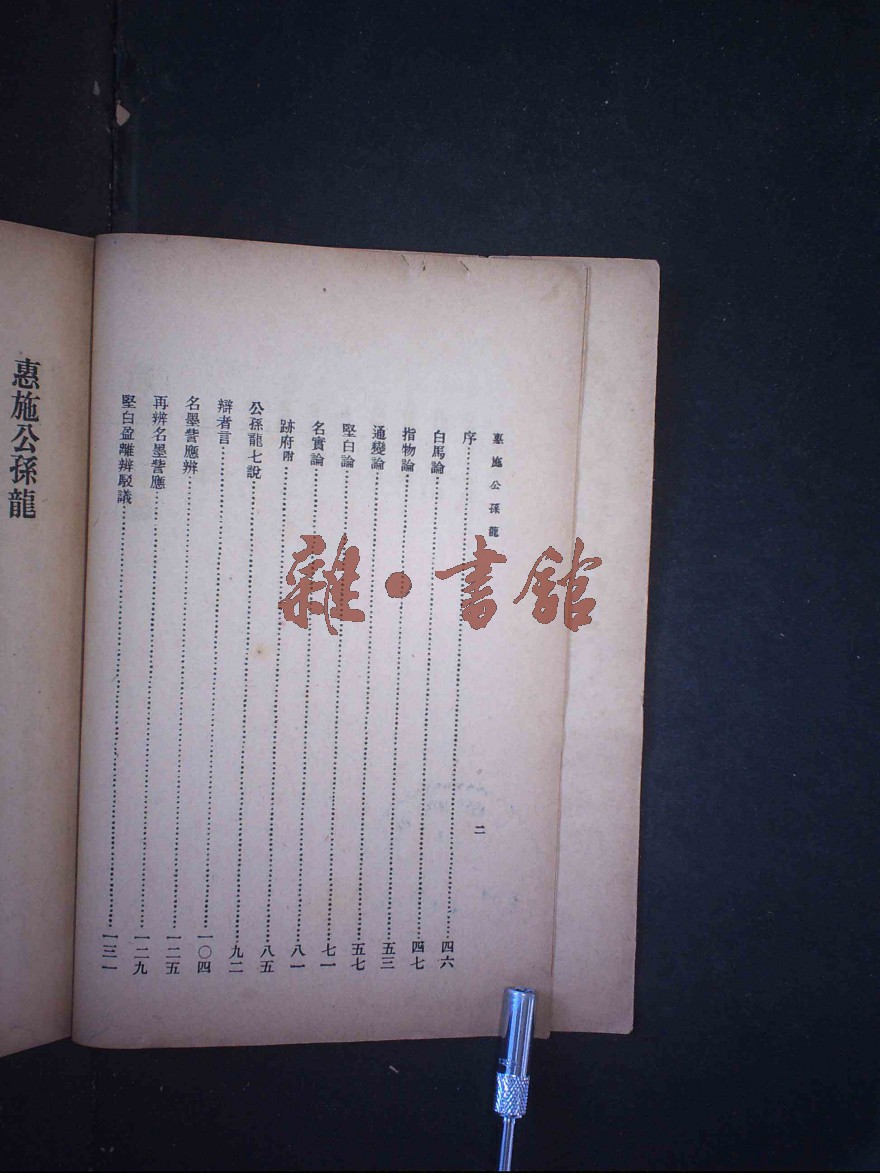 惠施公孫龍 二
序……四六
白馬論……四七
指物論……五三
通變論……五七
堅白論……七一
名實論……八一
跡府附……八五
公孫龍七說……九二
辯者言……一〇四
名墨訾應辨……一二五
再辨名墨訾應……一二九
堅白盈離辨駁議……一三一
惠施公孫龍
雜·書館